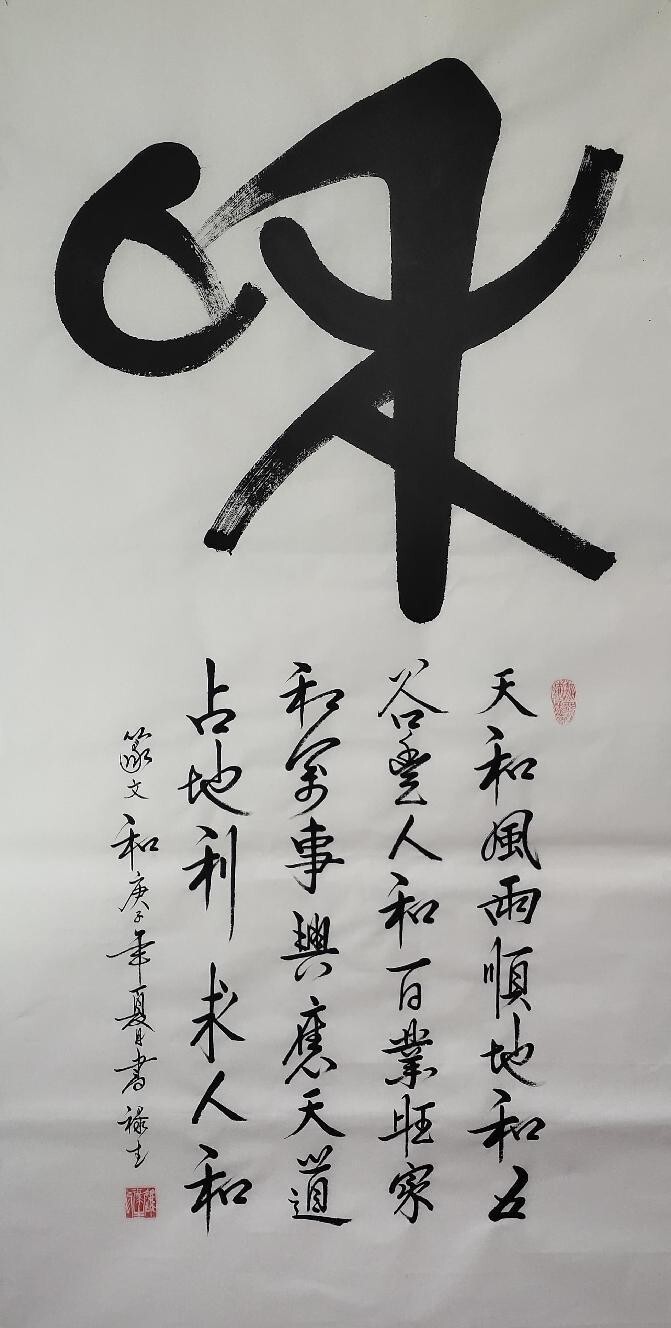 和
天和風雨順地和五
谷豐人和百業旺家
和萬事興應天道
占地利求人和
篆文和庚子年夏月書禄生